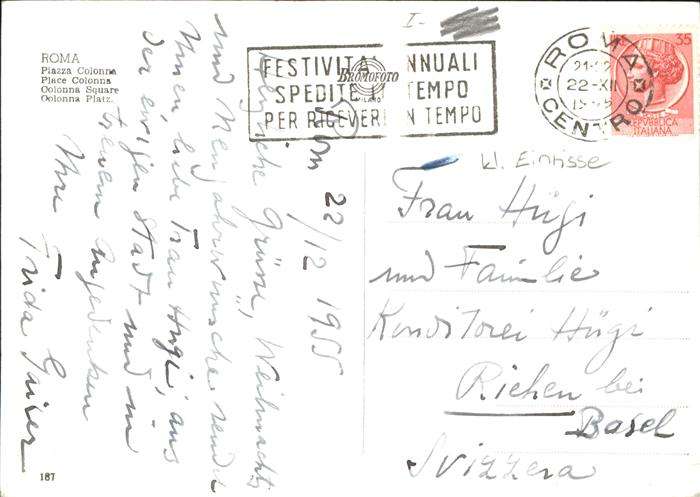 ROMA
Piazza Colonna
Place Colonna
Oolonna Square
Oolonna Platz
I-
FESTIVITA ANNUALI
SPEDITE TEMPO
PER RICEVERE IN TEMPO
BROMOFOTO
MILANO
ROMA
21-22
22-XII
CENTRO
35
REPVBBLICA
ITALIANA
kl. Einrisse
Rom 22/12 1955
Herzliche Grüsse, Weihnachts
und Neujahrwünsche sendet
Ihnen liebe Frau Hügi, aus
der ewigen Stadt und in
treuem Angedenken
Ihre Frida
Frau Hügi
und Familie
Konditorei Hügi
Riehen bei
Basel
Svizzera
187